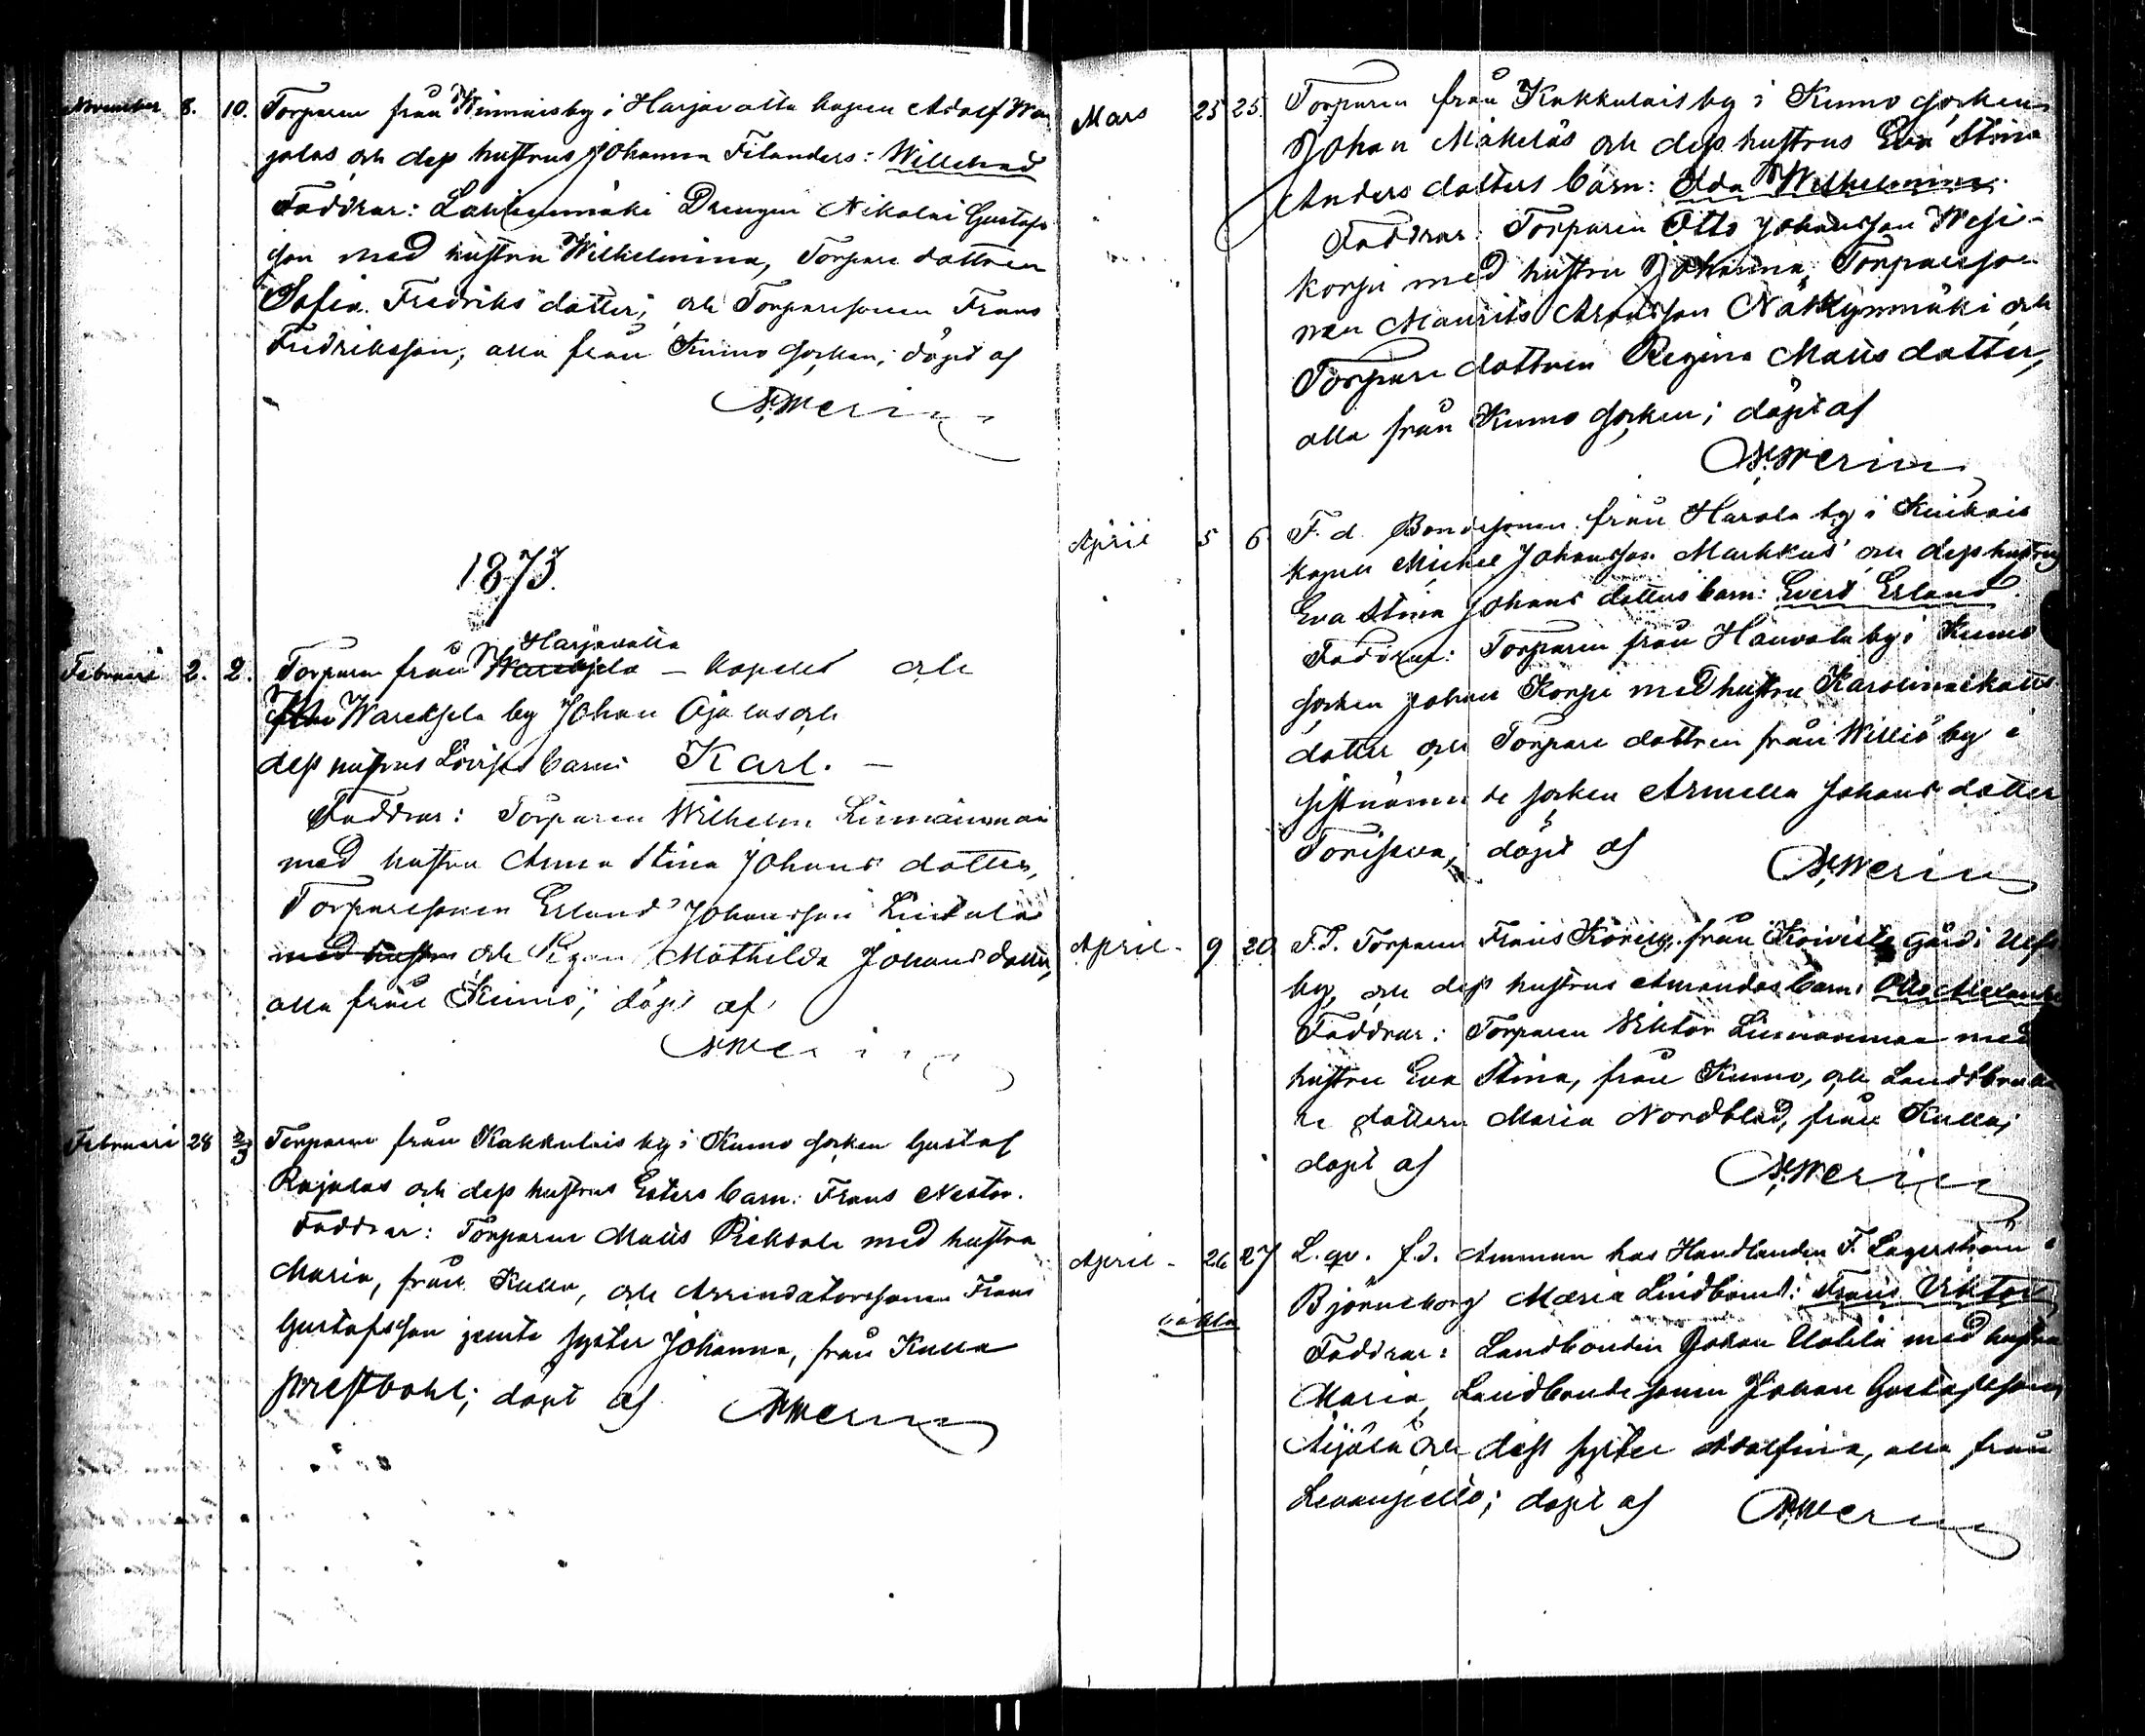 November 8. 10. Torparen från Winnais by i Harjavalta kapell Adolf Wan
jalas och dess hustrus Johanna Filanders: Willehad
Faddrar: Lanhenmäki Drengen Nikolai Gustafs
son med hustru Wilhelmina, Torpare dottren
Sofia Fredriks dotter, och Torparesonen Frans
Fredriksson, alla från Kumo socken; döpt af
1873.
Harjavalta
Februari 2. 2. Torparen från kapell och
Wareksela by Johan Ojalas och
dess hustrus Lovisas barn: Karl. —
Faddrar: Torparen Wilhelm Linnainmaa
med hustru Anna Stina Johans dotter,
Torparesonen Erland Johansson Lindala
med hustru och Pigan Mathilda Johansdotter,
alla från Kumo; döpt af
Februari 28 2/3 Torparen från Kakkulais by i Kumo socken Gustaf
Rajalas och dess hustrus Esters barn: Frans Nestor.
Faddrar: Torparen Matts Pieksola med hustru
Maria, från Kulla, och Arrendatorssonen Frans
Gustafsson jemte syster Johanna, från Kulla
prestbohl; döpt af
Mars 25 25. Torparen från Kakkulais by i Kumo socken
Johan Mäkeläs och dess hustrus Eva Stina
Anders dotters barn: Ida Wilhelmina.
Faddrar: Torparen Otto Johansson Wesi-
korpi med hustru Johanna, Torpareso-
nen Maurits Aronsson Näkkynmäki och
Torpare dottren Regina Matts dotter,
alla från Kumo socken; döpt af
April 5 6 F. d. Bondesonen från Harola by i Kiukais
kapell Michel Johansson Markkus och dess hustrus
Eva Stina Johans dotters barn: Evert Erland.
Faddrar: Torparen från Hanvola by i Kumo
socken Johan Korpi med hustru Karolina Matts
dotter och Torpare dottren från Williö by i
sistnämnde socken Armella Johans dotter
döpt af
April - 9 20 F.d. Torparen Frans från Koivisto gård i Ulfs
by, och dess hustrus Amandas barn: Otto Alexander
Faddrar: Torparen Viktor Linnanmaa med
hustru Eva Stina, från Kumo, och Landtbruka
re dottern Maria Nordblad, från Kulla;
döpt af
April - 26 27 L. qv. f.d. Amman hos Handlanden F. Lagerström i
Björneborg Maria Lindbom: Frans Viktor
oäkta
Faddrar: Landbonden Johan Uotila med hustru
Maria, Landbondesonen Johan Gustafsson
Äijälä och dess syster Adolfina, alla från
Levanpelto; döpt af